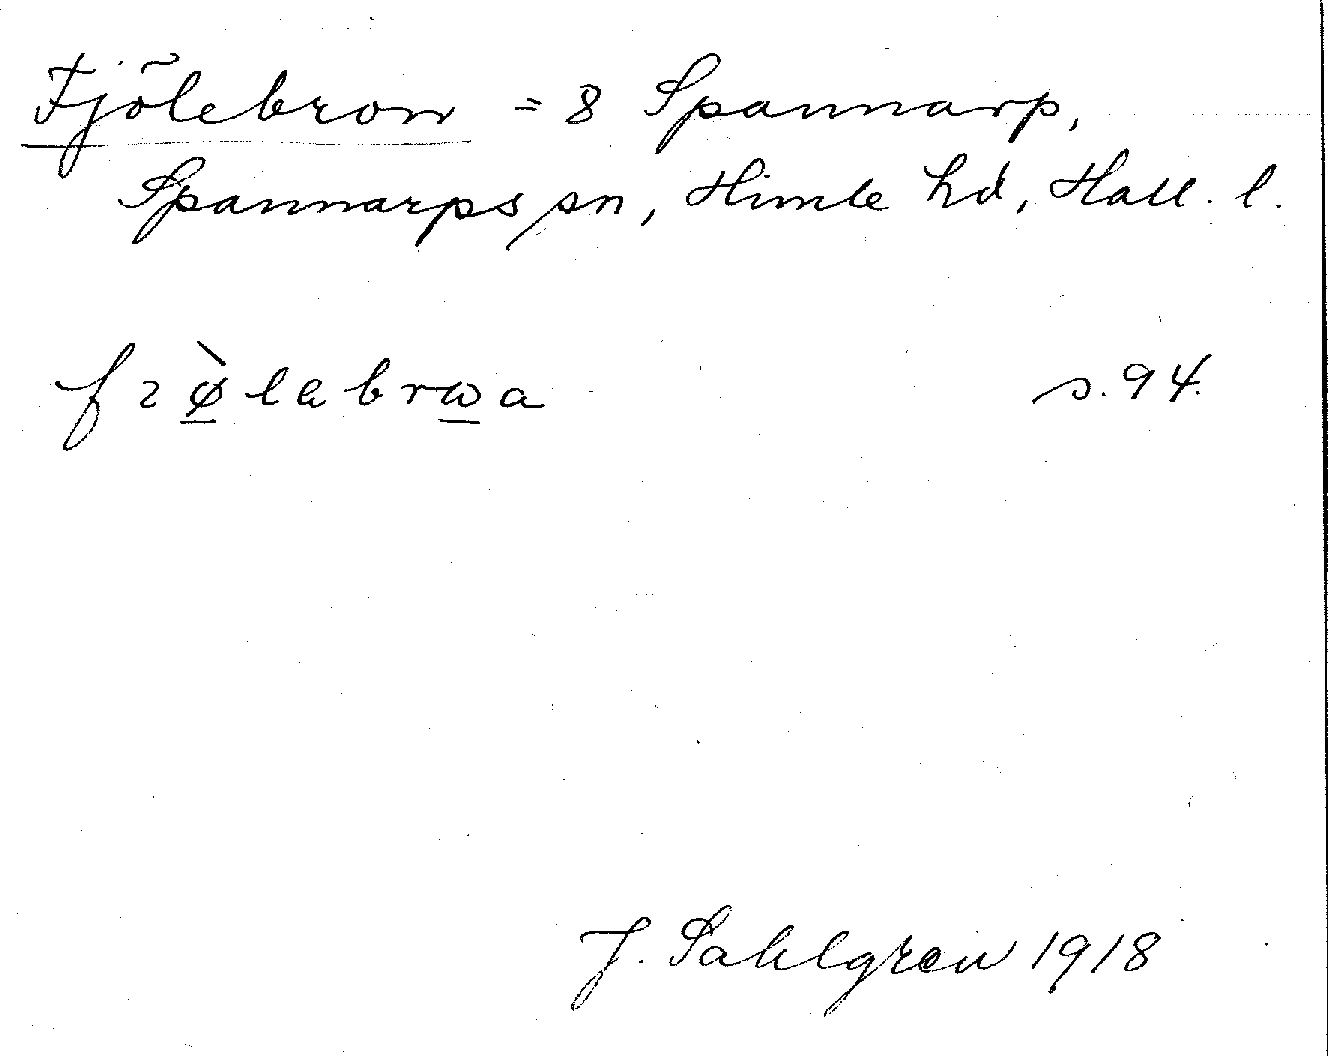 Fjölebron = 8 Spannarp,
Spannarps sn, Himle hd, Hall. l.
s. 94.
J. Sahlgren 1918